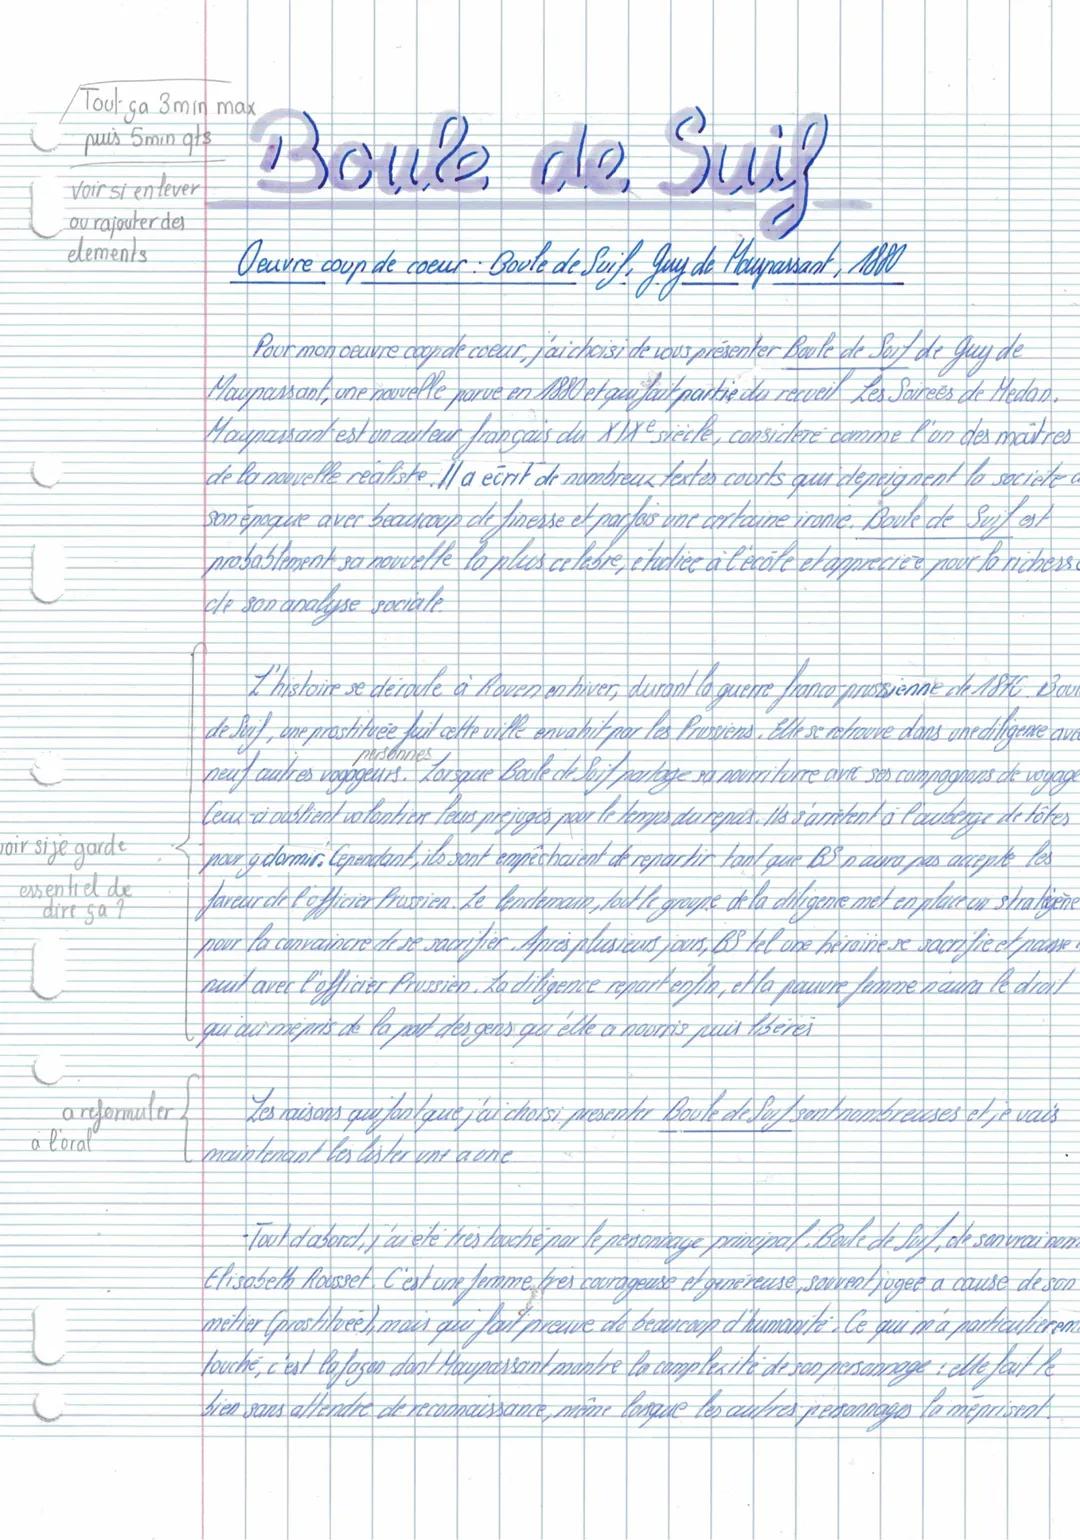 Tout ça 3min max
puis 5min qts
voir si enlever
ou rajouter des
elements
Boule de Suif
Oeuvre coup de coeur : Boule de Suif, Guy de Maupassant, 1880
Pour mon oeuvre coup de coeur, j'ai choisi de vous présenter Boule de Suif de Guy de
Maupassant, une nouvelle parue en 1880 et qui fait partie du recueil Les Soirées de Medan.
Maupassant est un auteur français du XIXe siècle, considéré comme l'un des maîtres
de la nouvelle réaliste. Il a écrit de nombreux textes courts qui dépeignent la société
son époque avec beaucoup de finesse et parfois une certaine ironie. Boule de Suif est
probablement sa nouvelle la plus celebre, etudiée à l'école et appreciée pour la richesse
de son analyse sociale.
L'histoire se déroule à Rouen en hiver, durant la guerre franco prussienne de 1870. Boul
de Suif, une prostituée fuit cette ville envahit par les Prussiens. Elle se retrouve dans une diligence avec
personnes
neuf autres voyageurs. Lorsque Boule de Suif partage sa nourriture avec ses compagnons de voyage
Ceux-ci oublient volontiers leurs préjugés pour le temps du repas. Ils s'arrêtent à l'auberge de tôtes
pour y dormir. Cependant, ils sont empêchaient de repartir tant que BS n'aura pas accepté les
faveur de l'officier Prussien. Le lendemain, tout le groupe de la diligence met en place un stratégène
pour la convaincre de se sacrifier. Après plusieurs jours, BS tel une héroïne se sacrifie et passe
nuit avec l'officier Prussien. La diligence repart enfin, et la pauvre femme n'aura le droit
qu'au mépris de la part des gens qu'elle a nourris puis libérés
voir si je garde
essentiel de
dire ça ?
a reformuler
a l'oral
Les raisons qui font que j'ai choisi presenter Boule de Suif sont nombreuses et je vais
maintenant les lister une a une
-Tout d'abord, j'ai été très touché par le personnage principal. Boule de Suif, de son vrai nom
Elisabeth Rousset. C'est une femme très courageuse et généreuse, souvent jugée a cause de son
métier (prostituée), mais qui fait preuve de beaucoup d'humanité. Ce qui m'a particulierem
touché, c'est la façon dont Maupassant montre la complexité de son personnage : elle fait le
bien sans attendre de reconnaissance, même lorsque les autres personnages la méprisent.